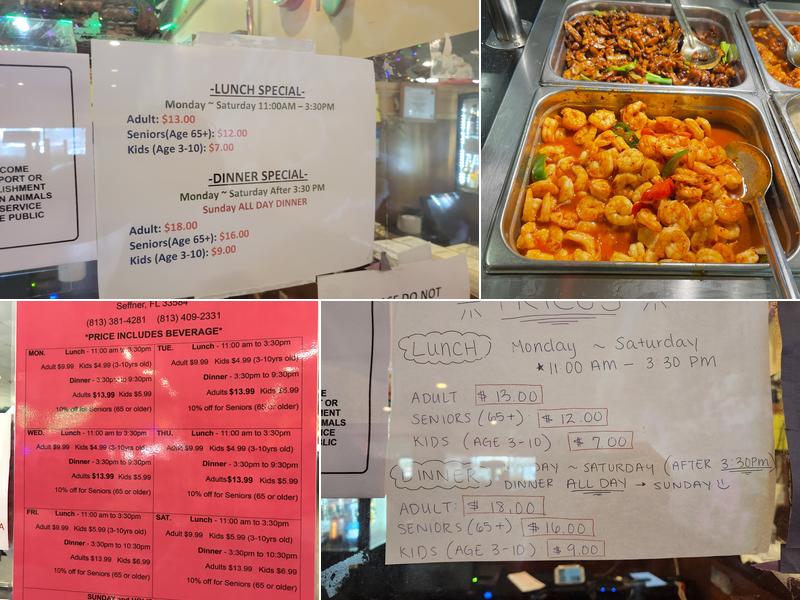 COME
PORT OR
LISHMENT
N ANIMALS
SERVICE
E PUBLIC
-LUNCH SPECIAL-
Monday ~ Saturday 11:00AM – 3:30PM
Adult: $13.00
Seniors(Age 65+): $12.00
Kids (Age 3-10): $7.00
-DINNER SPECIAL-
Monday ~ Saturday After 3:30 PM
Sunday ALL DAY DINNER
Adult: $18.00
Seniors(Age 65+): $16.00
Kids (Age 3-10): $9.00
DO NOT
Seffner, FL 33584
(813) 381-4281 (813) 409-2331
*PRICE INCLUDES BEVERAGE*
MON. Lunch - 11:00 am to 3:30pm
Adult $9.99 Kids $4.99 (3-10yrs old)
Dinner - 3:30pm to 9:30pm
Adults $13.99 Kids $5.99
10% off for Seniors (65 or older)
TUE. Lunch - 11:00 am to 3:30pm
Adult $9.99 Kids $4.99 (3-10yrs old)
Dinner - 3:30pm to 9:30pm
Adults $13.99 Kids $5.99
10% off for Seniors (65 or older)
WED. Lunch - 11:00 am to 3:30pm
Adult $9.99 Kids $4.99 (3-10yrs old)
Dinner - 3:30pm to 9:30pm
Adults $13.99 Kids $5.99
10% off for Seniors (65 or older)
THU. Lunch - 11:00 am to 3:30pm
Adult $9.99 Kids $4.99 (3-10yrs old)
Dinner - 3:30pm to 9:30pm
Adults $13.99 Kids $5.99
10% off for Seniors (65 or older)
FRI. Lunch - 11:00 am to 3:30pm
Adult $9.99 Kids $5.99 (3-10yrs old)
Dinner - 3:30pm to 10:30pm
Adults $13.99 Kids $6.99
10% off for Seniors (65 or older)
SAT. Lunch - 11:00 am to 3:30pm
Adult $9.99 Kids $5.99 (3-10yrs old)
Dinner - 3:30pm to 10:30pm
Adults $13.99 Kids $6.99
10% off for Seniors (65 or older)
SUNDAY
ENT
MALS
CE
LIC
PRICES
LUNCH Monday ~ Saturday
*11:00 AM – 3:30 PM
ADULT $13.00
SENIORS (65+) $12.00
KIDS (AGE 3-10) $7.00
DINNER DAY ~ SATURDAY (AFTER 3:30PM)
DINNER ALL DAY → SUNDAY
ADULT: $18.00
SENIORS (65+) $16.00
KIDS (AGE 3-10) $9.00